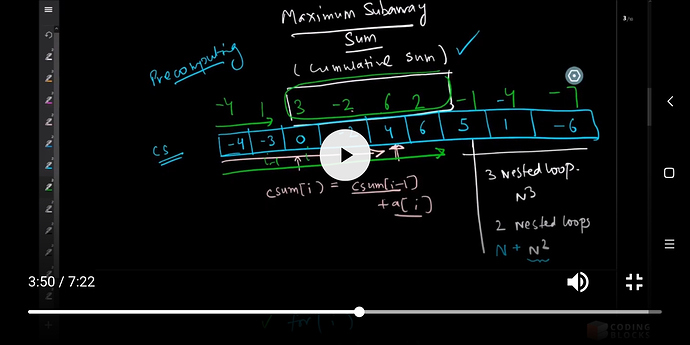 Maximum Subarray
Sum
(Cumulative sum)
Precomputing
-4 1 3 -2 6 2 -1 -4 -7
CS
-4 -3 0 4 6 5 1 -6
csum[i] = csum[i-1]
+ a[i]
3 Nested loop.
N3
2 Nested loops
N + N2
3:50 / 7:22
for(i)
CODING
BLOCKS